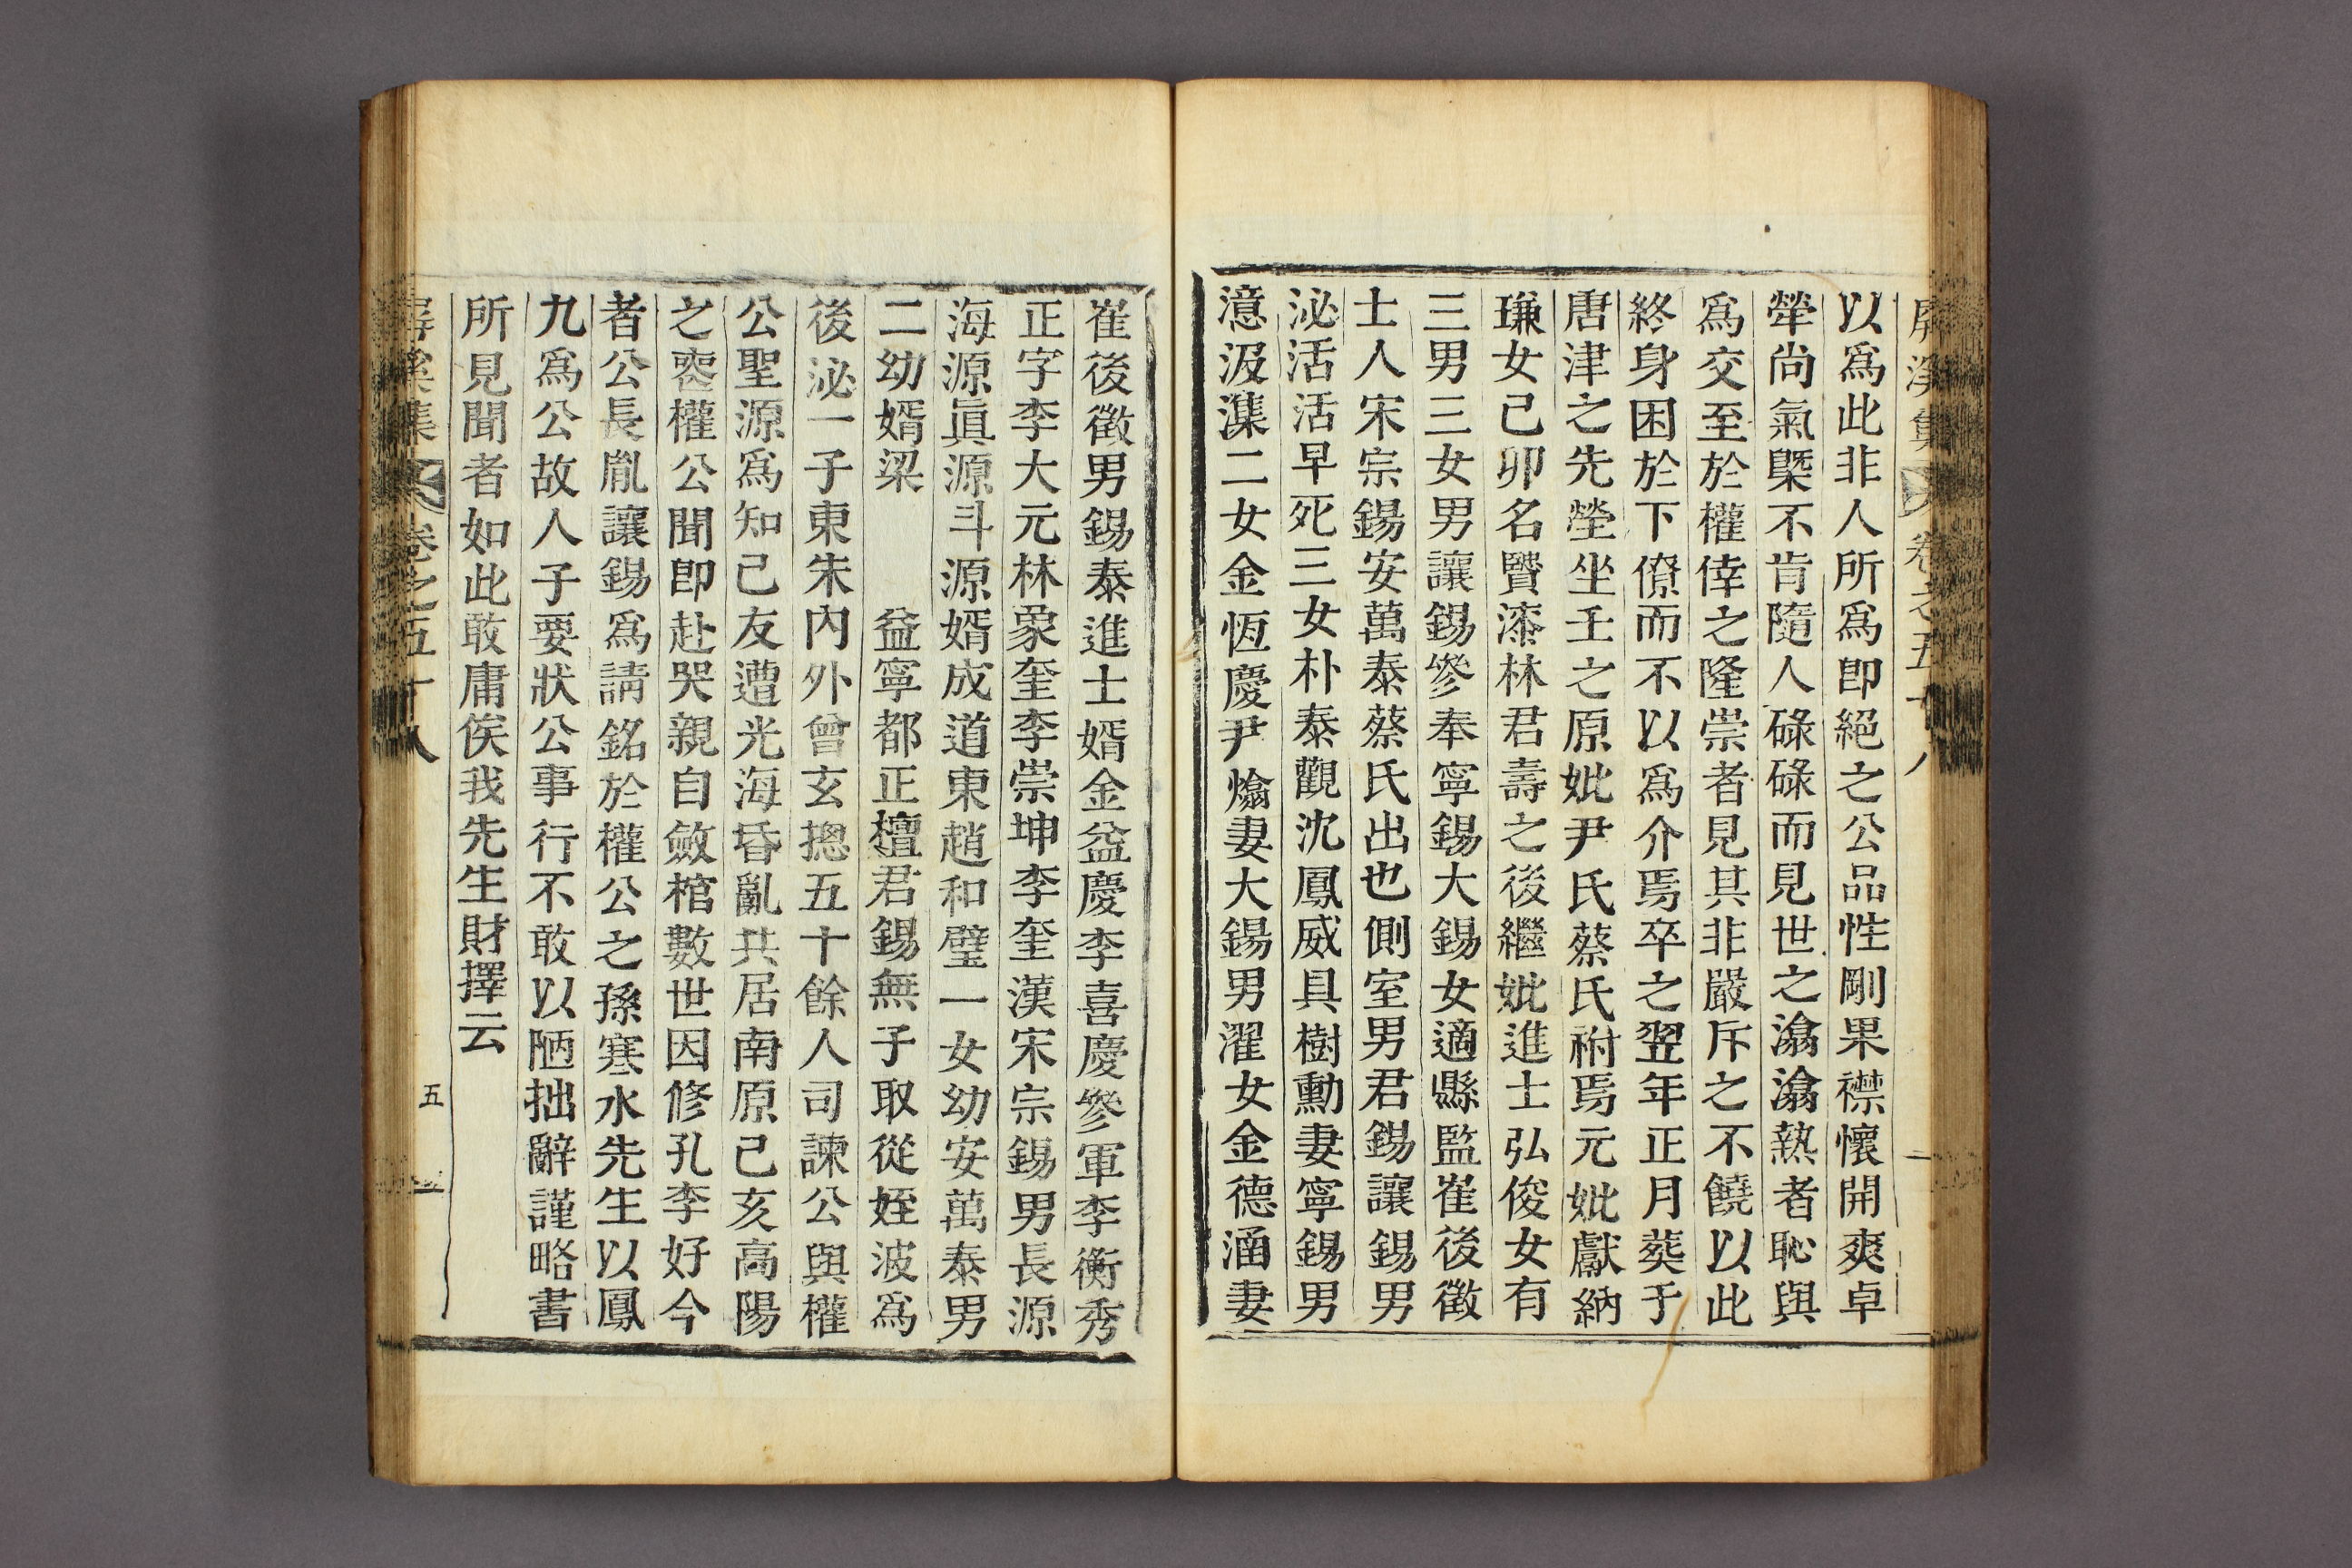 屛溪集 卷之五十八
以爲此非人所爲卽絕之公品性剛果襟懷開爽卓
犖尙氣槩不肯隨人碌碌而見世之滃滃熱者恥與
爲交至於權倖之隆崇者見其非嚴斥之不饒以此
終身困於下僚而不以爲介焉卒之翌年正月葬于
唐津之先塋坐壬之原妣尹氏蔡氏祔焉元妣獻納
㻩女己卯名賢漆林君壽之後繼妣進士弘俊女有
三男三女男讓錫參奉寧錫大錫女適縣監崔後徵
士人宋宗錫安萬泰蔡氏出也側室男君錫讓錫男
泌活活早死三女朴泰觀沈鳳威具樹勳妻寧錫男
澺汲潗二女金恆慶尹熻妻大錫男濯女金德涵妻
崔後徵男錫泰進士婿金益慶李喜慶參軍李衡秀
正字李大元林象奎李崇坤李奎漢宋宗錫男長源
海源眞源斗源婿成道東趙和璧一女幼安萬泰男
二幼婿梁 益寧都正檀君錫無子取從姪波爲
後泌一子東朱內外曾玄摠五十餘人司諫公與權
公聖源爲知己友遭光海昏亂共居南原己亥高陽
之喪權公聞卽赴哭親自斂棺數世因修孔李好今
者公長胤讓錫爲請銘於權公之孫寒水先生以鳳
九爲公故人子要狀公事行不敢以陋拙辭謹略書
所見聞者如此敢庸俟我先生財擇云
屛溪集 卷之五十八 五